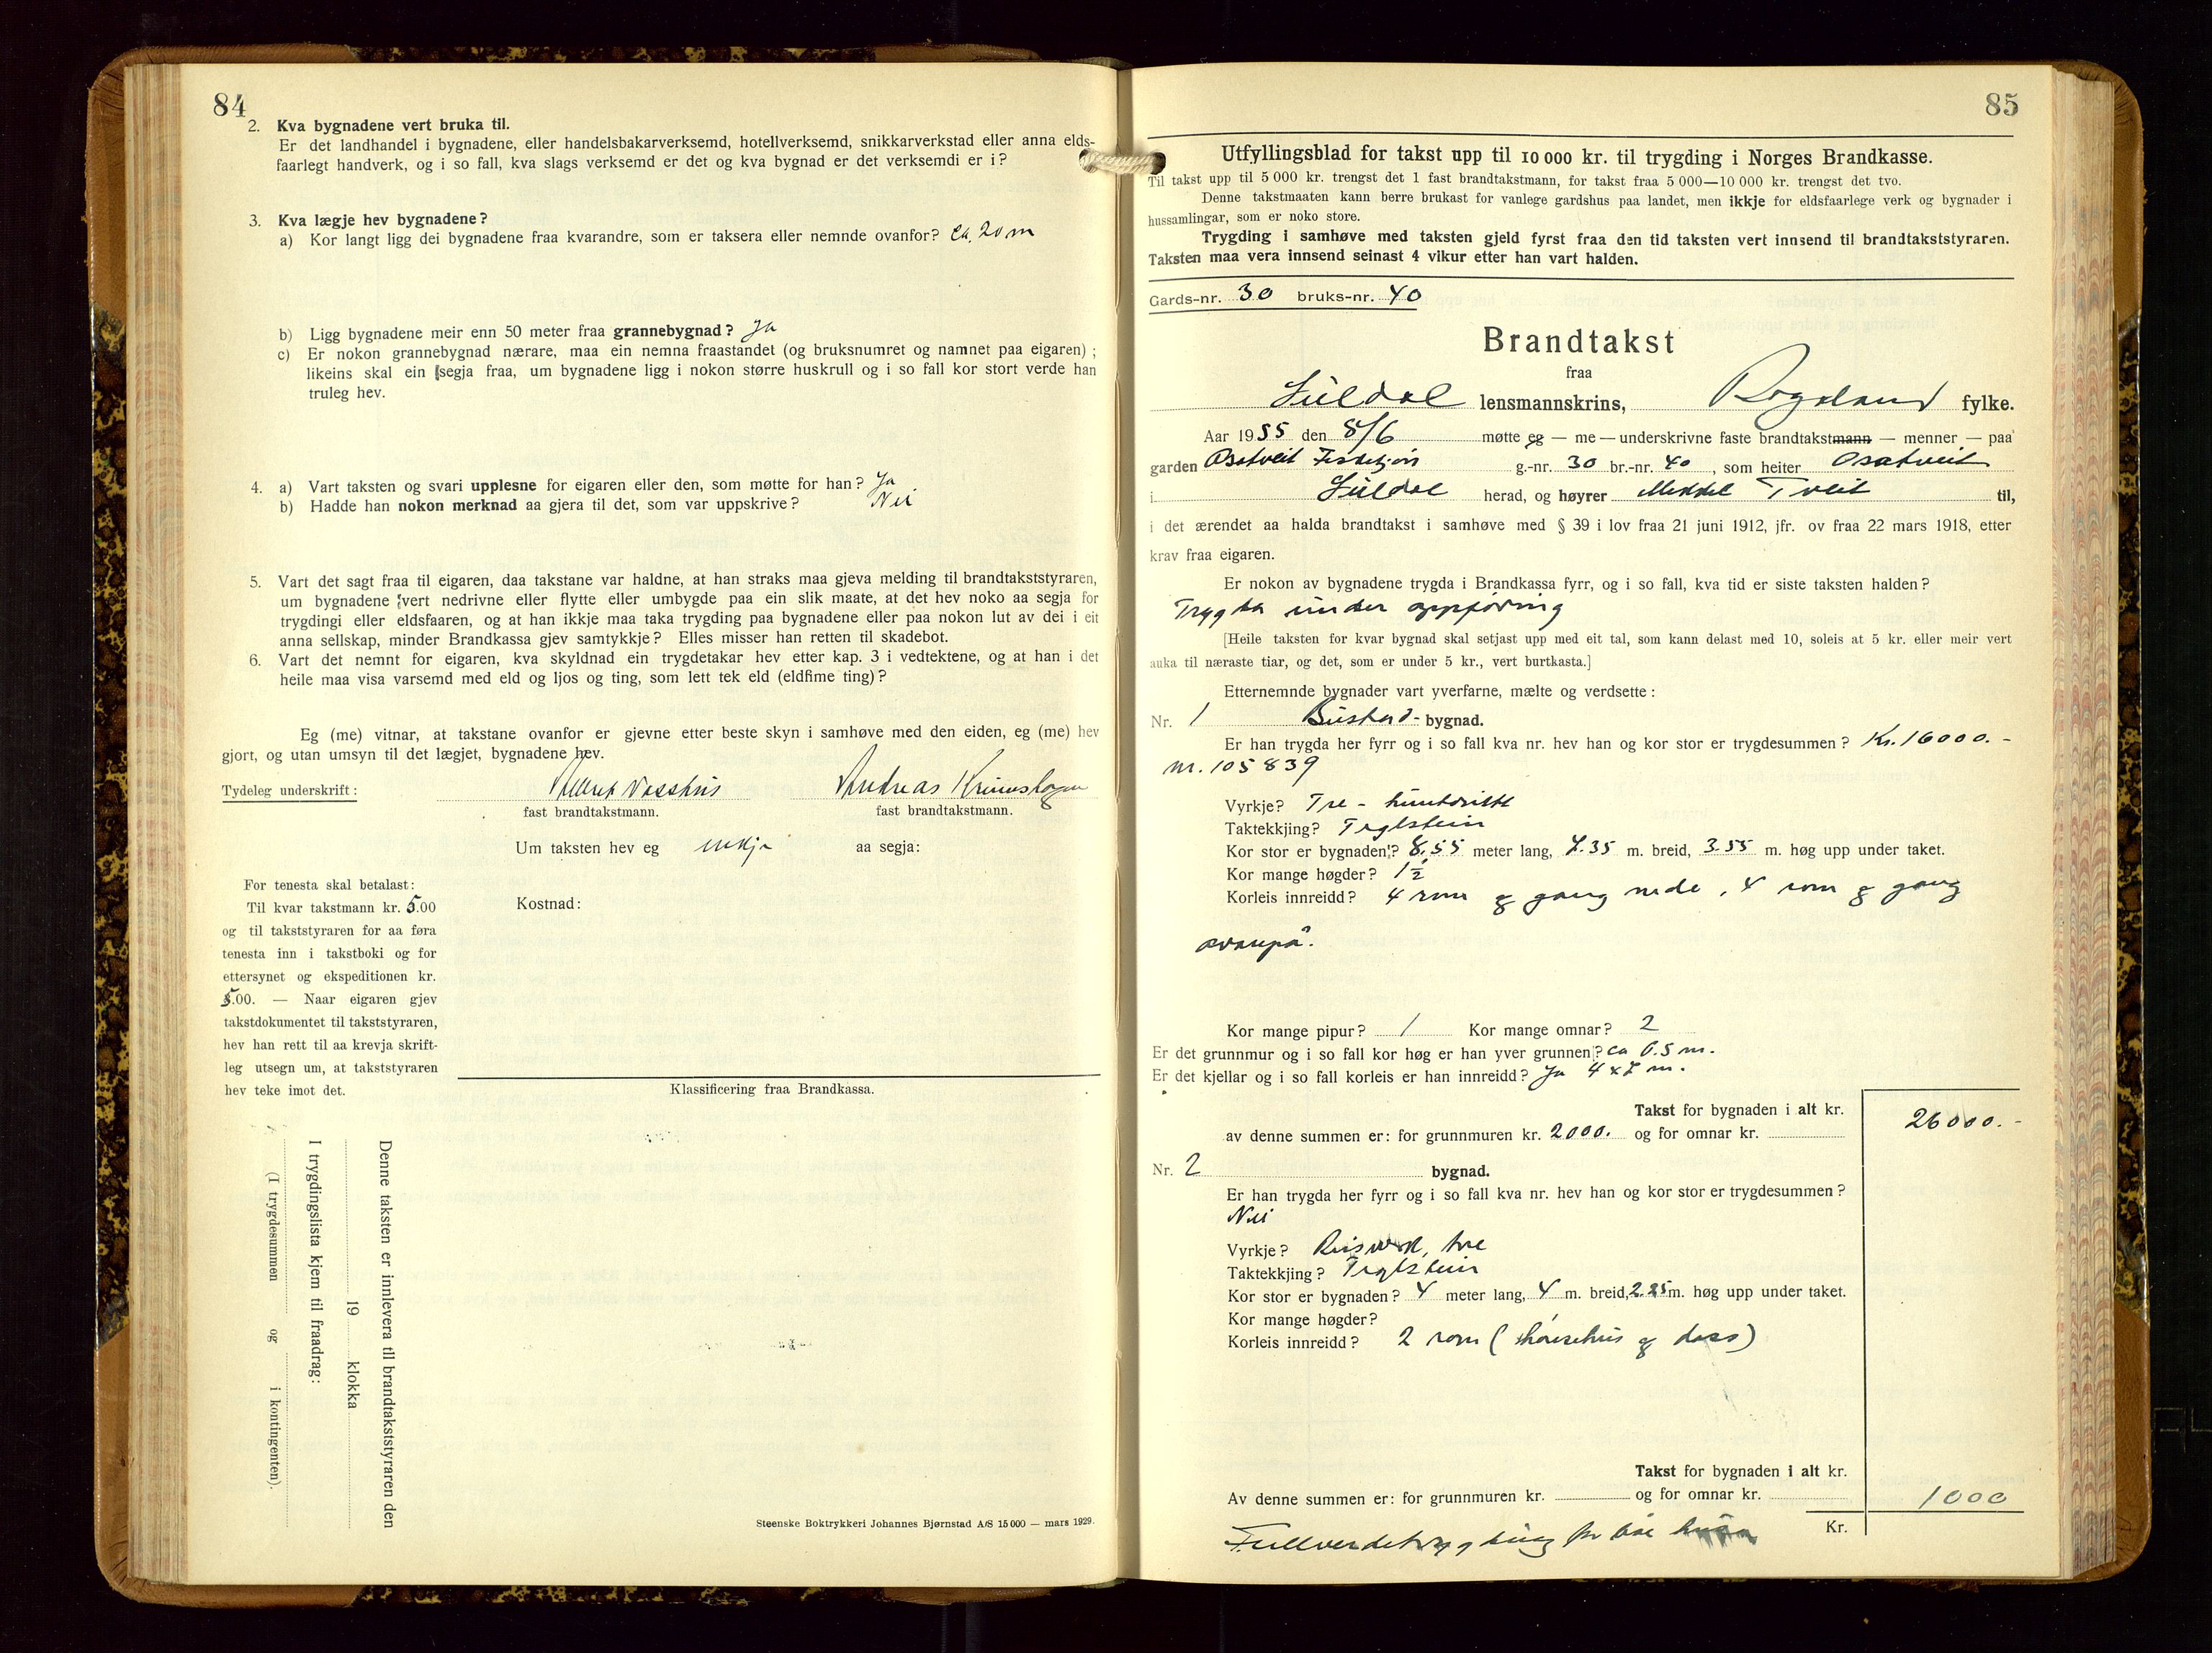 84
2. Kva bygnadene vert bruka til.
Er det landhandel i bygnadene, eller handelsbakarverksemd, hotellverksemd, snikkarverkstad eller anna elds-
faarlegt handverk, og i so fall, kva slags verksemd er det og kva bygnad er det verksemdi er i?
3. Kva lægje hev bygnadene?
a) Kor langt ligg dei bygnadene fraa kvarandre, som er taksera eller nemnde ovanfor? ca. 20 m
b) Ligg bygnadene meir enn 50 meter fraa grannebygnad? Ja
c) Er nokon grannebygnad nærare, maa ein nemna fraastandet (og bruksnumret og namnet paa eigaren) ;
likeins skal ein segja fraa, um bygnadene ligg i nokon større huskrull og i so fall kor stort verde han
truleg hev.
4. a) Vart taksten og svari upplesne for eigaren eller den, som møtte for han? Ja
b) Hadde han nokon merknad aa gjera til det, som var uppskrive? Nei
5. Vart det sagt fraa til eigaren, daa takstane var haldne, at han straks maa gjeva melding til brandtakststyraren,
um bygnadene vert nedrivne eller flytte eller umbygde paa ein slik maate, at det hev noko aa segja for
trygdingi eller eldsfaaren, og at han ikkje maa taka trygding paa bygnadene eller paa nokon lut av dei i eit
anna sellskap, minder Brandkassa gjev samtykkje? Elles misser han retten til skadebot.
6. Vart det nemnt for eigaren, kva skyldnad ein trygdetakar hev etter kap. 3 i vedtektene, og at han i det
heile maa visa varsemd med eld og ljos og ting, som lett tek eld (eldfime ting)?
Eg (me) vitnar, at takstane ovanfor er gjevne etter beste skyn i samhøve med den eiden, eg (me) hev
gjort, og utan umsyn til det lægjet, bygnadene hev.
Tydeleg underskrift: Vasshus Andreas
fast brandtakstmann. fast brandtakstmann.
Um taksten hev eg inkje aa segja:
For tenesta skal betalast:
Til kvar takstmann kr. 5.00
og til takststyraren for aa føra
tenesta inn i takstboki og for
ettersynet og ekspeditionen kr.
5.00. — Naar eigaren gjev
takstdokumentet til takststyraren,
hev han rett til aa krevja skrift-
leg utsegn um, at takststyraren
hev teke imot det.
Kostnad:
Klassificering fraa Brandkassa.
Denne taksten er innlevera til brandtakststyraren den
19 klokka
I trygdingslista kjem til fraadrag:
(I trygdesummen og i kontingenten).
Steenske Boktrykkeri Johannes Bjørnstad A/S 15 000 — mars 1929.
85
Utfyllingsblad for takst upp til 10 000 kr. til trygding i Norges Brandkasse.
Til takst upp til 5 000 kr. trengst det 1 fast brandtakstmann, for takst fraa 5 000—10 000 kr. trengst det tvo.
Denne takstmaaten kann berre brukast for vanlege gardshus paa landet, men ikkje for eldsfaarlege verk og bygnader i
hussamlingar, som er noko store.
Trygding i samhøve med taksten gjeld fyrst fraa den tid taksten vert innsend til brandtakststyraren.
Taksten maa vera innsend seinast 4 vikur etter han vart halden.
Gards-nr. 30 bruks-nr. 40
Brandtakst
fraa
Suldal lensmannskrins, Rogaland fylke.
Aar 1955 den 8/6 møtte eg — me — underskrivne faste brandtakstmann — menner — paa
garden Osatveit g.-nr. 30 br.-nr. 40, som heiter Osatveit
i Suldal herad, og høyrer Tveit til,
i det ærendet aa halda brandtakst i samhøve med § 39 i lov fraa 21 juni 1912, jfr. ov fraa 22 mars 1918, etter
krav fraa eigaren.
Er nokon av bygnadene trygda i Brandkassa fyrr, og i so fall, kva tid er siste taksten halden?
Trygda under oppføring
[Heile taksten for kvar bygnad skal setjast upp med eit tal, som kann delast med 10, soleis at 5 kr. eller meir vert
auka til næraste tiar, og det, som er under 5 kr., vert burtkasta.]
Etternemnde bygnader vart yverfarne, mælte og verdsette:
Nr. 1 Bustad- bygnad.
Er han trygda her fyrr og i so fall kva nr. hev han og kor stor er trygdesummen? Kr. 16000.-
nr. 105839
Vyrkje? Tre -
Taktekkjing? Teglstein
Kor stor er bygnaden? 8.55 meter lang, 7.35 m. breid, 3.55 m. høg upp under taket.
Kor mange høgder? 1½
Korleis innreidd? 4 rom og gang nede, 4 rom og gang
ovanpå.
Kor mange pipur? 1 Kor mange omnar? 2
Er det grunnmur og i so fall kor høg er han yver grunnen? ca 0.5 m.
Er det kjellar og i so fall korleis er han innreidd? Ja 4 x 7 m.
Takst for bygnaden i alt kr. 26000.-
av denne summen er: for grunnmuren kr. 2000. og for omnar kr.
Nr. 2 bygnad.
Er han trygda her fyrr og i so fall kva nr. hev han og kor stor er trygdesummen?
Nei
Vyrkje? Reisverk, tre
Taktekkjing? Teglstein
Kor stor er bygnaden? 4 meter lang, 4 m. breid, 2.25 m. høg upp under taket.
Kor mange høgder?
Korleis innreidd? 2 rom (hønsehus og doss)
Takst for bygnaden i alt kr.
Av denne summen er: for grunnmuren kr. og for omnar kr. 1000
Kr.
Fullverdetrygding for båe husa